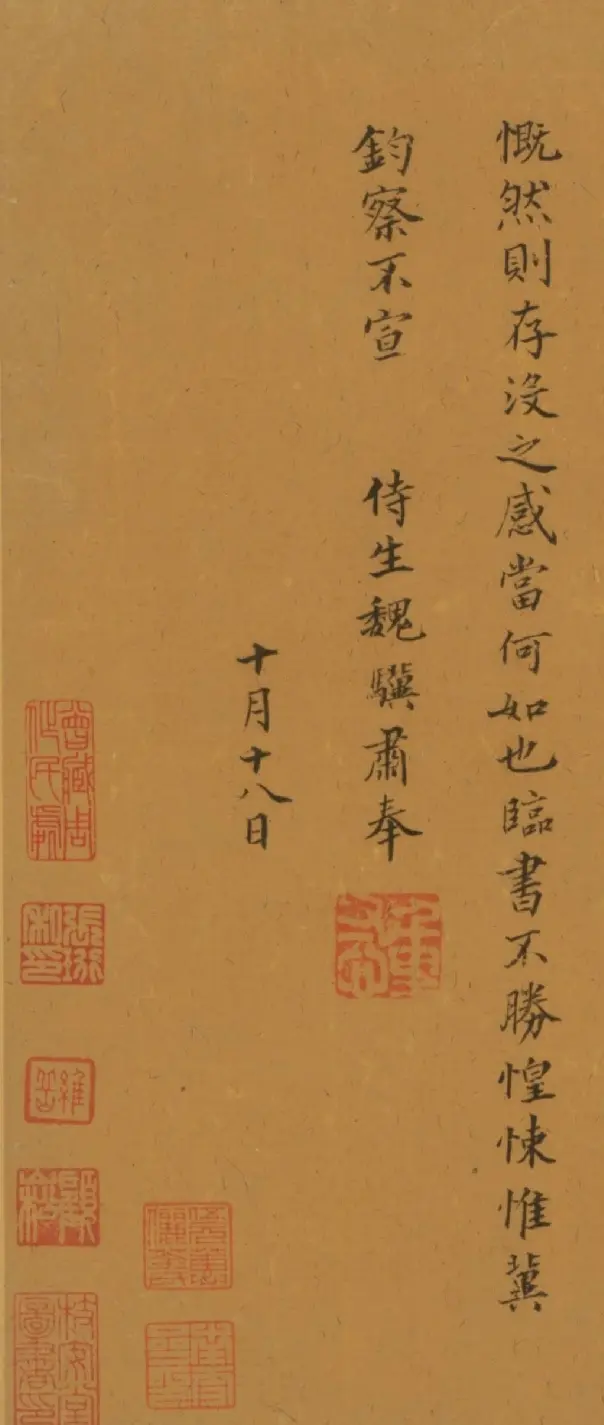 慨然則存沒之感當何如也臨書不勝惶悚惟冀
鈞察不宣 侍生魏驥肅奉
十月十八日